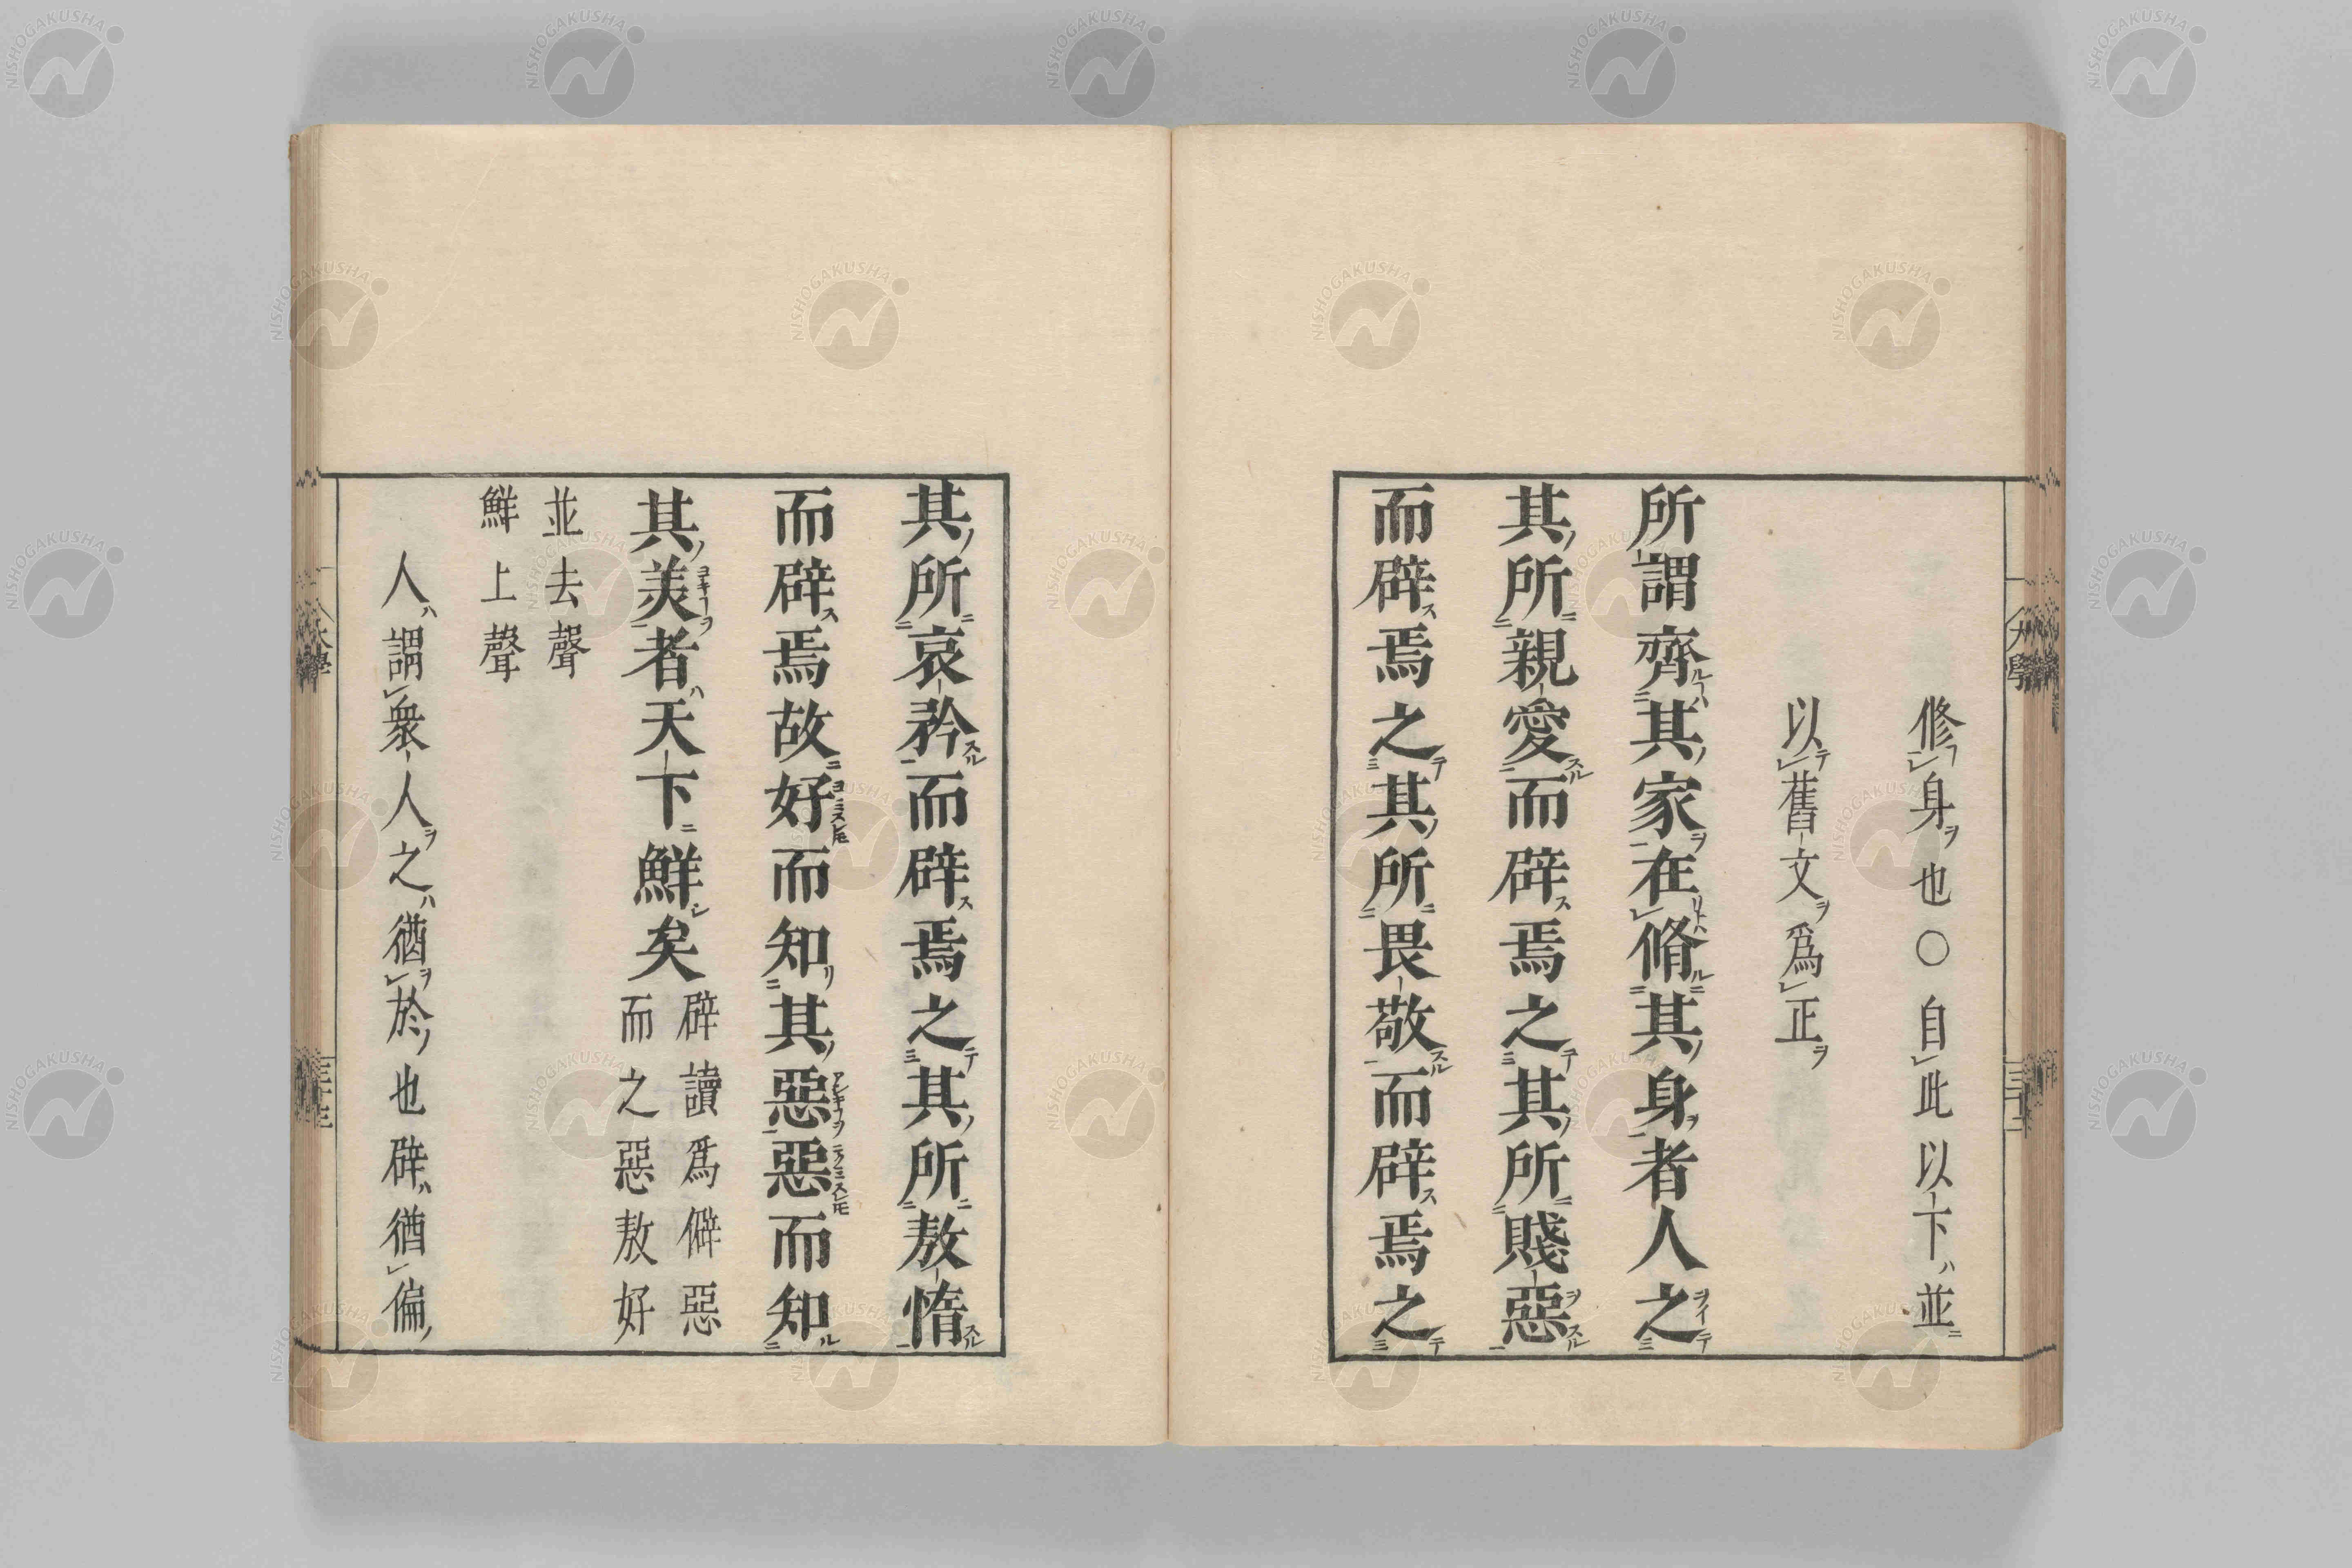 修身也○自此以下並
以舊文爲正
所謂齊其家在脩其身者人之
其所親愛而辟焉之其所賤惡
而辟焉之其所畏敬而辟焉之
其所哀矜而辟焉之其所敖惰
而辟焉故好而知其惡惡而知
其美者天下鮮矣
辟讀爲僻惡
而之惡敖好
並去聲
鮮上聲
人謂衆人之猶於也辟猶偏
大學
NISHOGAKUSHA